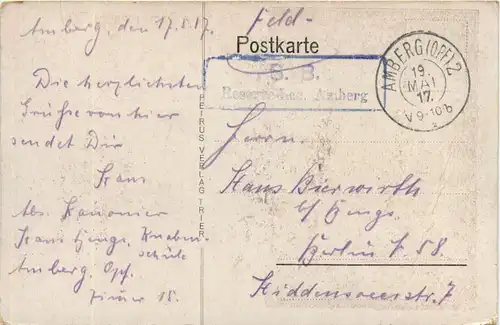 Amberg, den 17.5.17.
Die herzlichsten
Grüsse von hier
sendet Dir
Hans
Abs. Kanonier
Hans Hengs, Knaben-
schule
Amberg. Opf.
Zimmer 15.
PETRUS VERLAG TRIER
Feld-
Postkarte
S. B.
Reserve-Laz. Amberg
AMBERG (OPF.) 2
19.
MAI
17.
V 9-10 b
Herrn
Hans Bierwirth
b/ Hengs
Berlin N 58.
Hiddenseerstr. 7